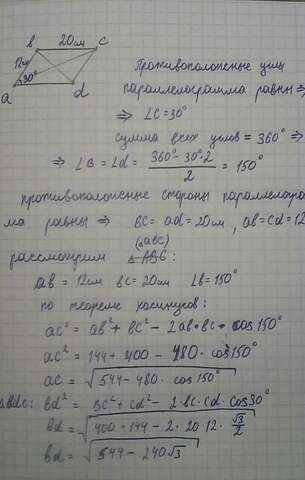 в 20см с
12см
30°
а d
Противоположные углы
параллелограмма равны ⇒
⇒ ∠C = 30°
сумма всех углов = 360° ⇒
⇒ ∠B = ∠d = (360° - 30°·2)/2 = 150°
противоположные стороны параллелогра
ма равны ⇒ BC = ad = 20см, ab = cd = 12
(△abc)
рассмотрим △ABC:
ab = 12см BC = 20см ∠b = 150°
по теореме косинусов:
ac² = ab² + BC² - 2ab·BC · cos150°
ac² = 144 + 400 - 480 · cos150°
ac = √(544 - 480 · cos150°)
bd² = BC² + cd² - 2BC·cd·cos30°
bd = √(400 + 144 - 2·20·12·√3/2)
bd = √(544 - 240√3)